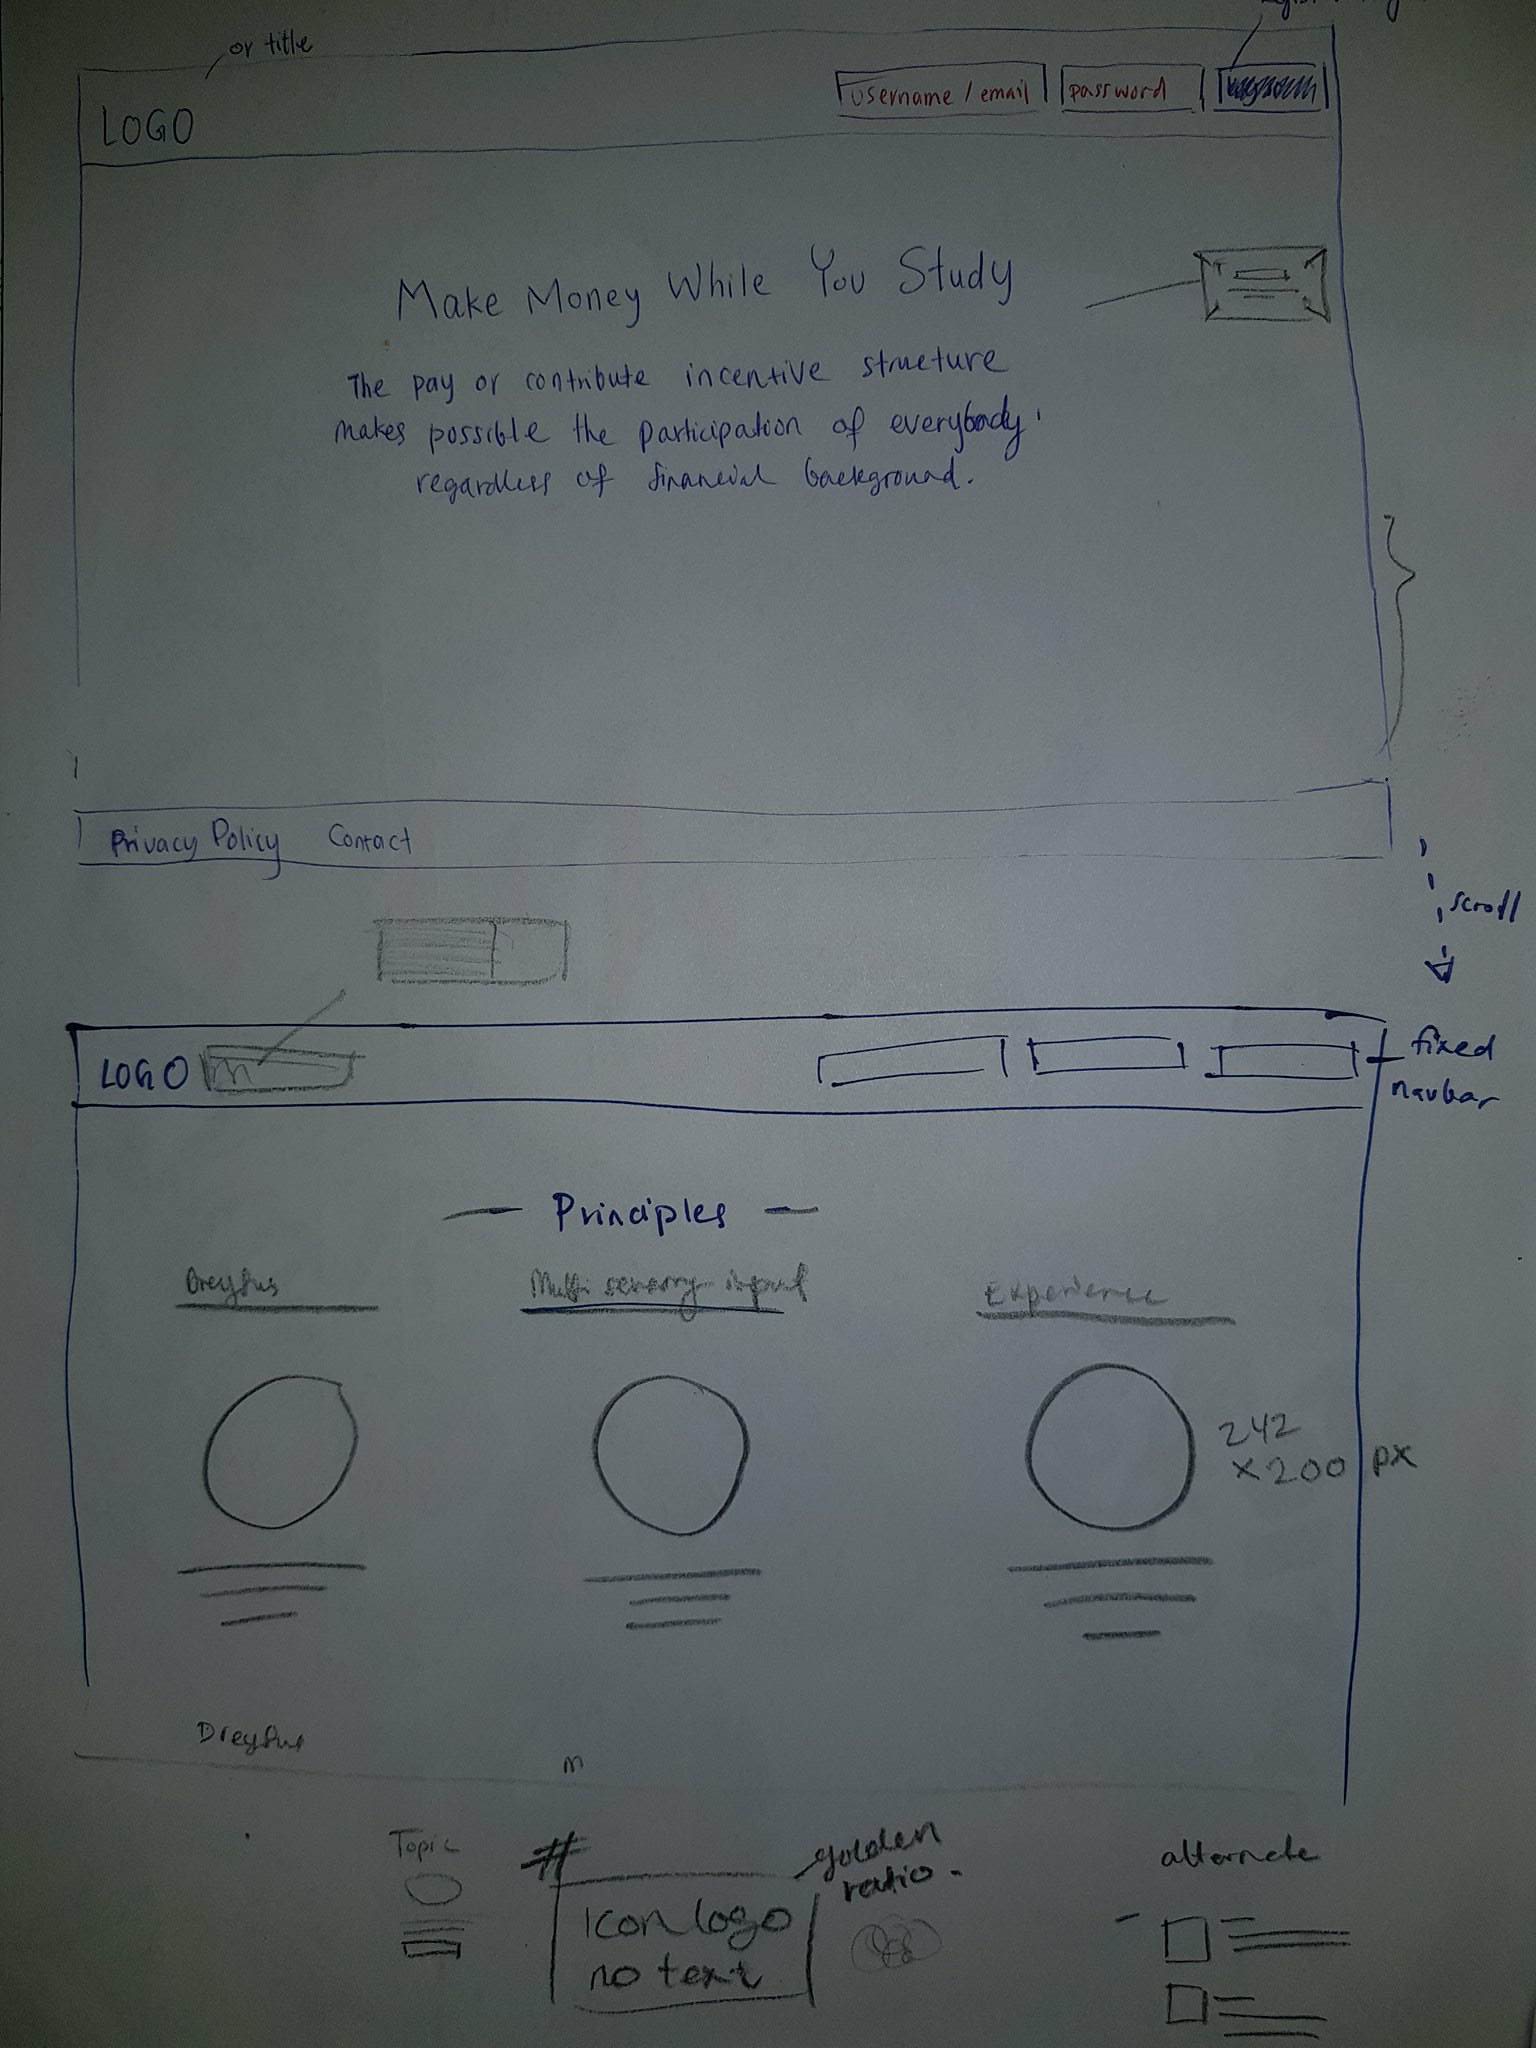 or title
LOGO
username / email
password
Make Money While You Study
The pay or contribute incentive structure
makes possible the participation of everybody,
regardless of financial background.
Privacy Policy Contact
scroll
LOGO
fixed
navbar
— Principles —
Dreyfus
Multi sensory input
Experience
242
x 200 px
Dreyfus
m
Topic
#
golden
ratio.
Icon logo
no text
alternate